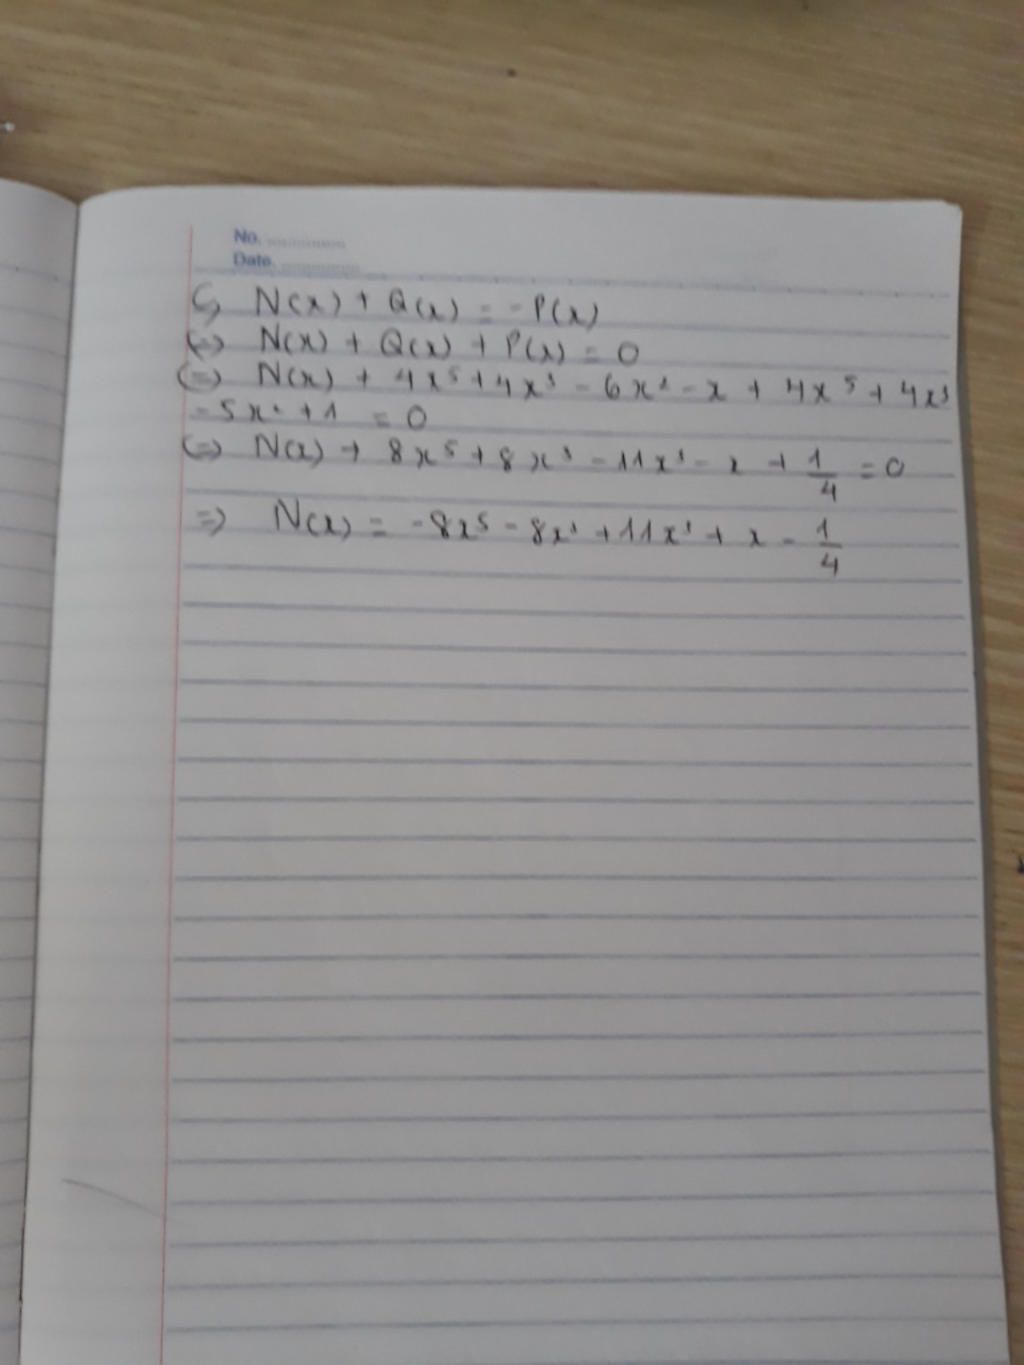 No. ............
Date. ............
C, N(x) + Q(x) = -P(x)
(=) N(x) + Q(x) + P(x) = 0
(=) N(x) + 4x⁵ + 4x³ - 6x² - x + 4x⁵ + 4x³
- 5x² + 1 = 0
(=) N(x) + 8x⁵ + 8x³ - 11x³ - x + 1/4 = 0
=) N(x) = -8x⁵ - 8x³ + 11x³ + x - 1/4